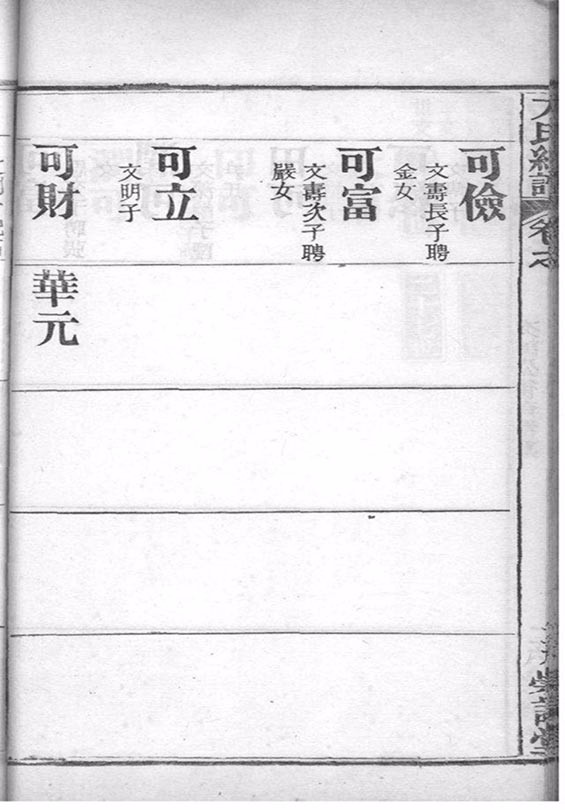 可儉
文壽長子聘
金女
可富
文壽次子聘
嚴女
可立
文明子
可財
華元